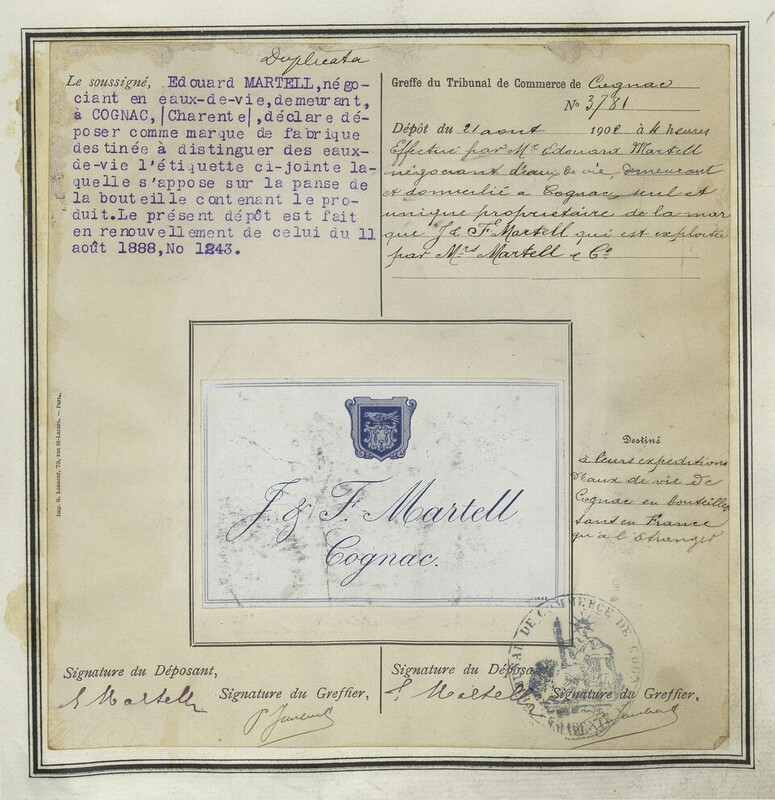 Duplicata
Le soussigné, Edouard MARTELL,négo-
ciant en eaux-de-vie,demeurant,
à COGNAC,|Charente|,déclare dé-
poser comme marque de fabrique
destinée à distinguer des eaux-
de-vie l'étiquette ci-jointe la-
quelle s'appose sur la panse de
la bouteille contenant le pro-
duit.Le présent dépôt est fait
en renouvellement de celui du 11
août 1888,No 1243.
Greffe du Tribunal de Commerce de Cognac
No 3781
Dépôt du 21 aout 1908 à 4 heures
Effectué par Mr Edouard Martell
négociant d'eaux de vie, demeurant
et domicilié a Cognac, seul et
unique propriétaire de la mar
que J & F Martell qui est exploitée
par Mrs Martell & Co
Imp. G. Lesourd, 73, rue St-Lazare. — Paris.
J. & F. Martell
Cognac.
Destiné
à leurs expeditions
d'eaux de vie de
Cognac en bouteilles
tant en France
qu'a l'étranger
DE COMMERCE DE
CHARENTE
Signature du Déposant,
E Martell
Signature du Greffier,
Signature du Déposant,
E Martell
Signature du Greffier,